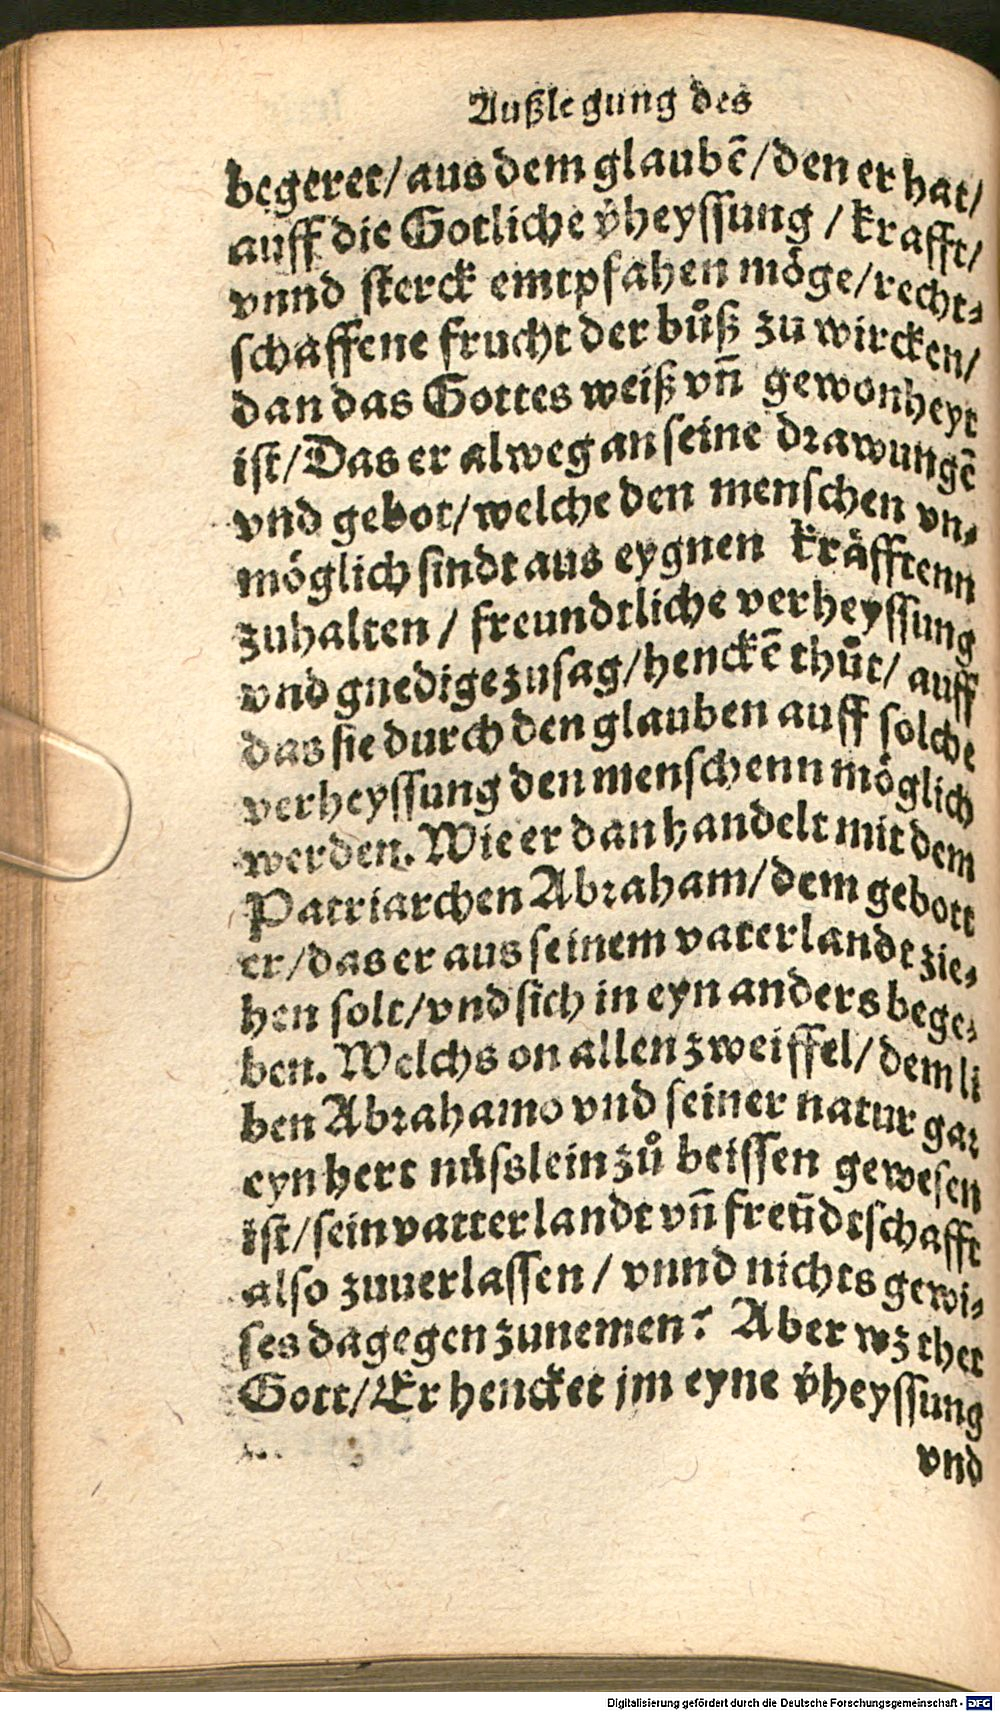 Außlegung des
begeret/ aus dem glaubẽ/ den er hat/
auff die Gotliche v̈heyssung / krafft/
vnnd sterck emtpfahen möge/ recht-
schaffene frucht der bůß zu wircken/
dan das Gottes weiß vñ gewonheyt
ist/ Das er alweg an seine drawungẽ
vnd gebot/ welche den menschen vn-
möglich sindt aus eygnen kräfftenn
zuhalten / freundtliche verheyssung
vnd gnedige zusag/ henckẽ thůt/ auff
das sie durch den glauben auff solche
verheyssung den menschenn möglich
werden. Wie er dan handelt mit dem
Patriarchen Abraham/ dem gebott
er/ das er aus seinem vaterlandt zie-
hen solt/ vnd sich in eyn anders bege-
ben. Welchs on allen zweiffel/ dem li
ben Abrahamo vnd seiner natur gar
eyn hert nüßlein zů beissen gewesen
ist/ sein vatterlandt vñ freũdtschafft
also zuuerlassen / vnnd nichts gewi-
ses dagegen zunemen? Aber wz thet
Gott/ Er hencket jm eyne v̈heyssung
vnd
Digitalisierung gefördert durch die Deutsche Forschungsgemeinschaft - DFG